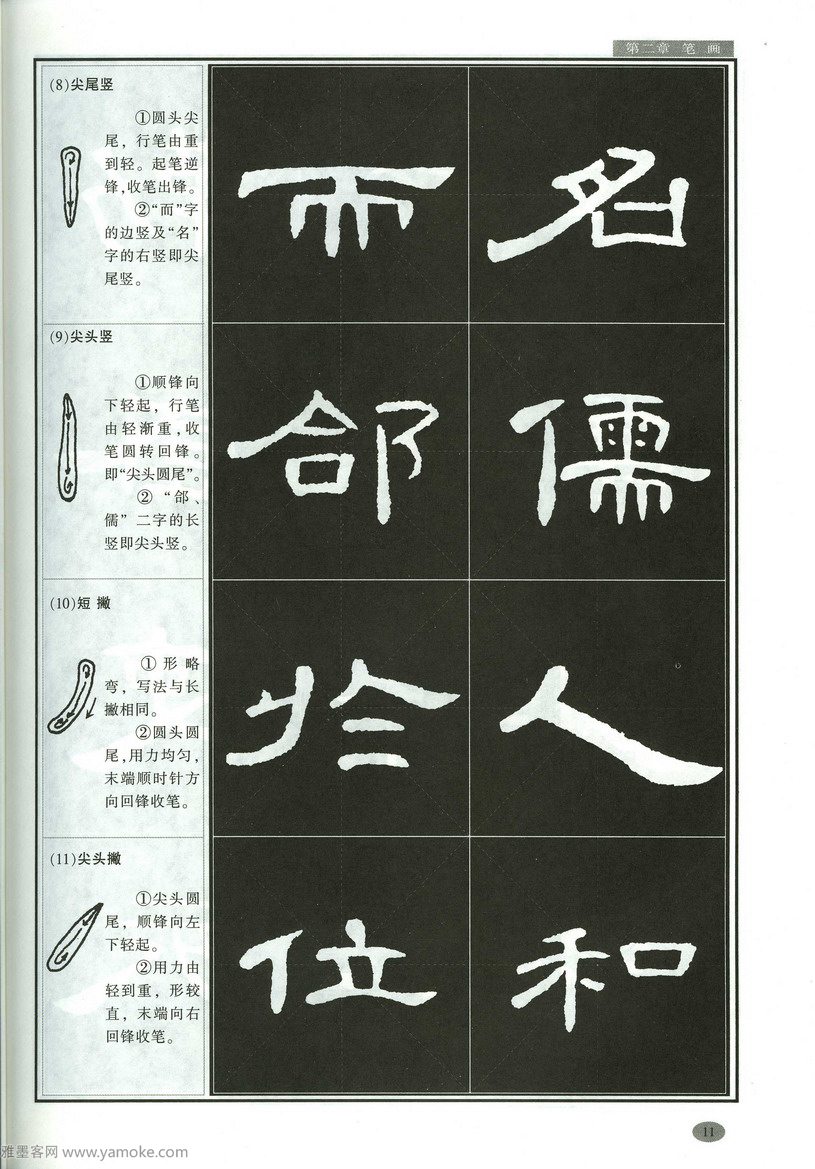 第二章 笔 画
(8)尖尾竖
①圆头尖
尾，行笔由重
到轻。起笔逆
锋,收笔出锋。
②“而”字
的边竖及“名”
字的右竖即尖
尾竖。
而 名
(9)尖头竖
①顺锋向
下轻起，行笔
由轻渐重,收
笔圆转回锋。
即“尖头圆尾”。
②“郃、
儒”二字的长
竖即尖头竖。
郃 儒
(10)短 撇
①形略
弯，写法与长
撇相同。
②圆头圆
尾,用力均匀,
末端顺时针方
向回锋收笔。
於 人
(11)尖头撇
①尖头圆
尾，顺锋向左
下轻起。
②用力由
轻到重，形较
直，末端向右
回锋收笔。
位 和
11
雅墨客网 www.yamoke.com